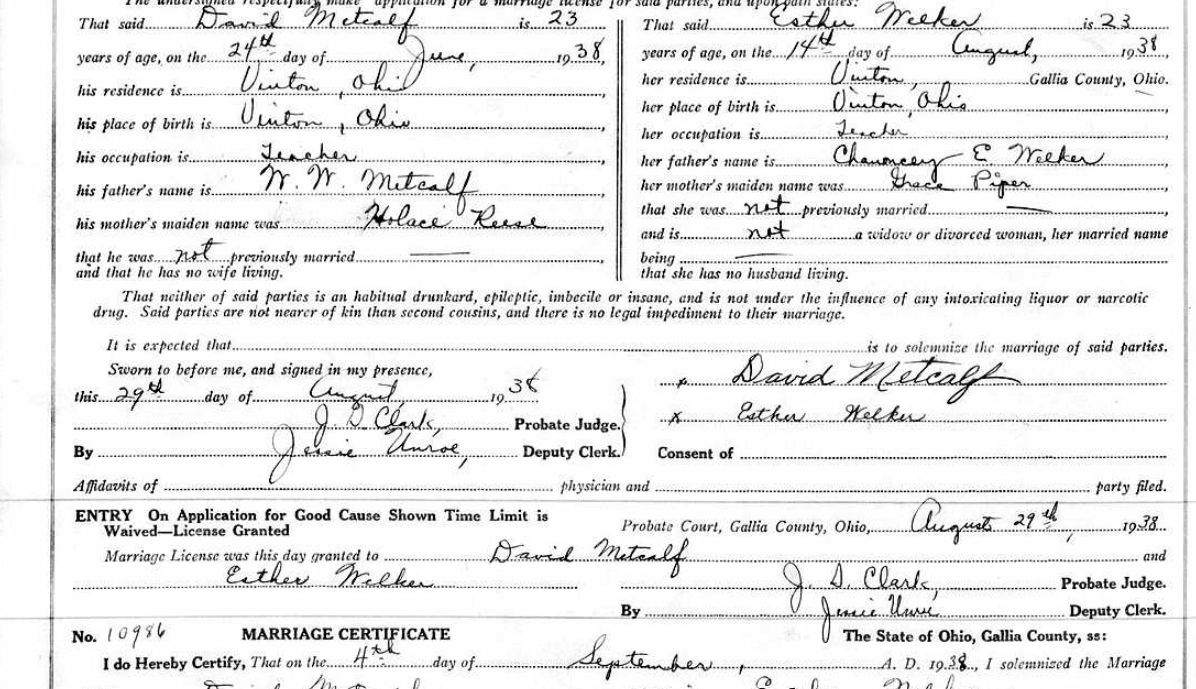 The undersigned respectfully make application for a marriage license for said parties, and upon oath states:
That said David Metcalf is 23
years of age, on the 24th day of June, 1938,
his residence is Vinton, Ohio,
his place of birth is Vinton, Ohio,
his occupation is Teacher,
his father's name is W. W. Metcalf,
his mother's maiden name was Holace Reese,
that he was not previously married —
and that he has no wife living.
That said Esther Welker is 23
years of age, on the 14th day of August, 1938
her residence is Vinton, Gallia County, Ohio.
her place of birth is Vinton, Ohio,
her occupation is Teacher,
her father's name is Chauncey E. Welker,
her mother's maiden name was Grace Piper,
that she was not previously married —,
and is not a widow or divorced woman, her married name
being —
that she has no husband living.
That neither of said parties is an habitual drunkard, epileptic, imbecile or insane, and is not under the influence of any intoxicating liquor or narcotic
drug. Said parties are not nearer of kin than second cousins, and there is no legal impediment to their marriage.
It is expected that is to solemnize the marriage of said parties.
Sworn to before me, and signed in my presence,
this 29th day of August, 1938
J. D. Clark, Probate Judge.
By Jessie Unroe, Deputy Clerk.
x David Metcalf
x Esther Welker
Consent of
Affidavits of physician and party filed.
ENTRY On Application for Good Cause Shown Time Limit is
Waived—License Granted
Probate Court, Gallia County, Ohio, August 29th, 1938
Marriage License was this day granted to David Metcalf and
Esther Welker
J. D. Clark, Probate Judge.
By Jessie Unroe Deputy Clerk.
No. 10986 MARRIAGE CERTIFICATE The State of Ohio, Gallia County, ss:
I do Hereby Certify, That on the 4th day of September, A. D. 1938, I solemnized the Marriage
David Metcalf Esther Welker